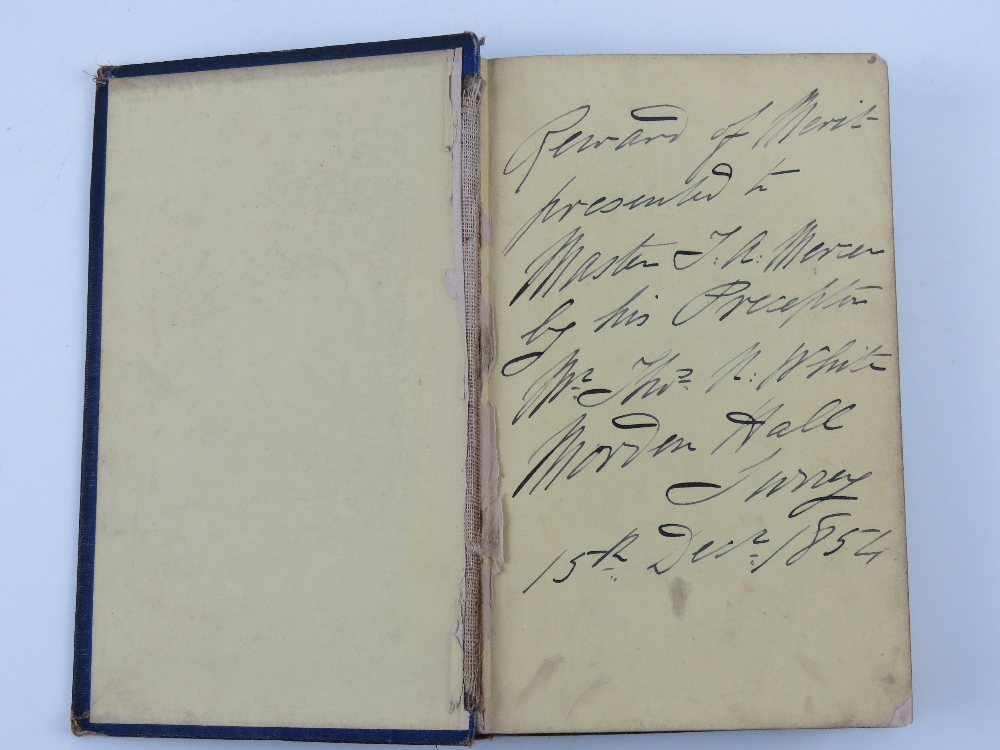 Reward of Merit
presented to
Master T. A. Mercer
by his Preceptor
Mr. Thos. N. White
Morden Hall
Surrey
15th Decr. 1854